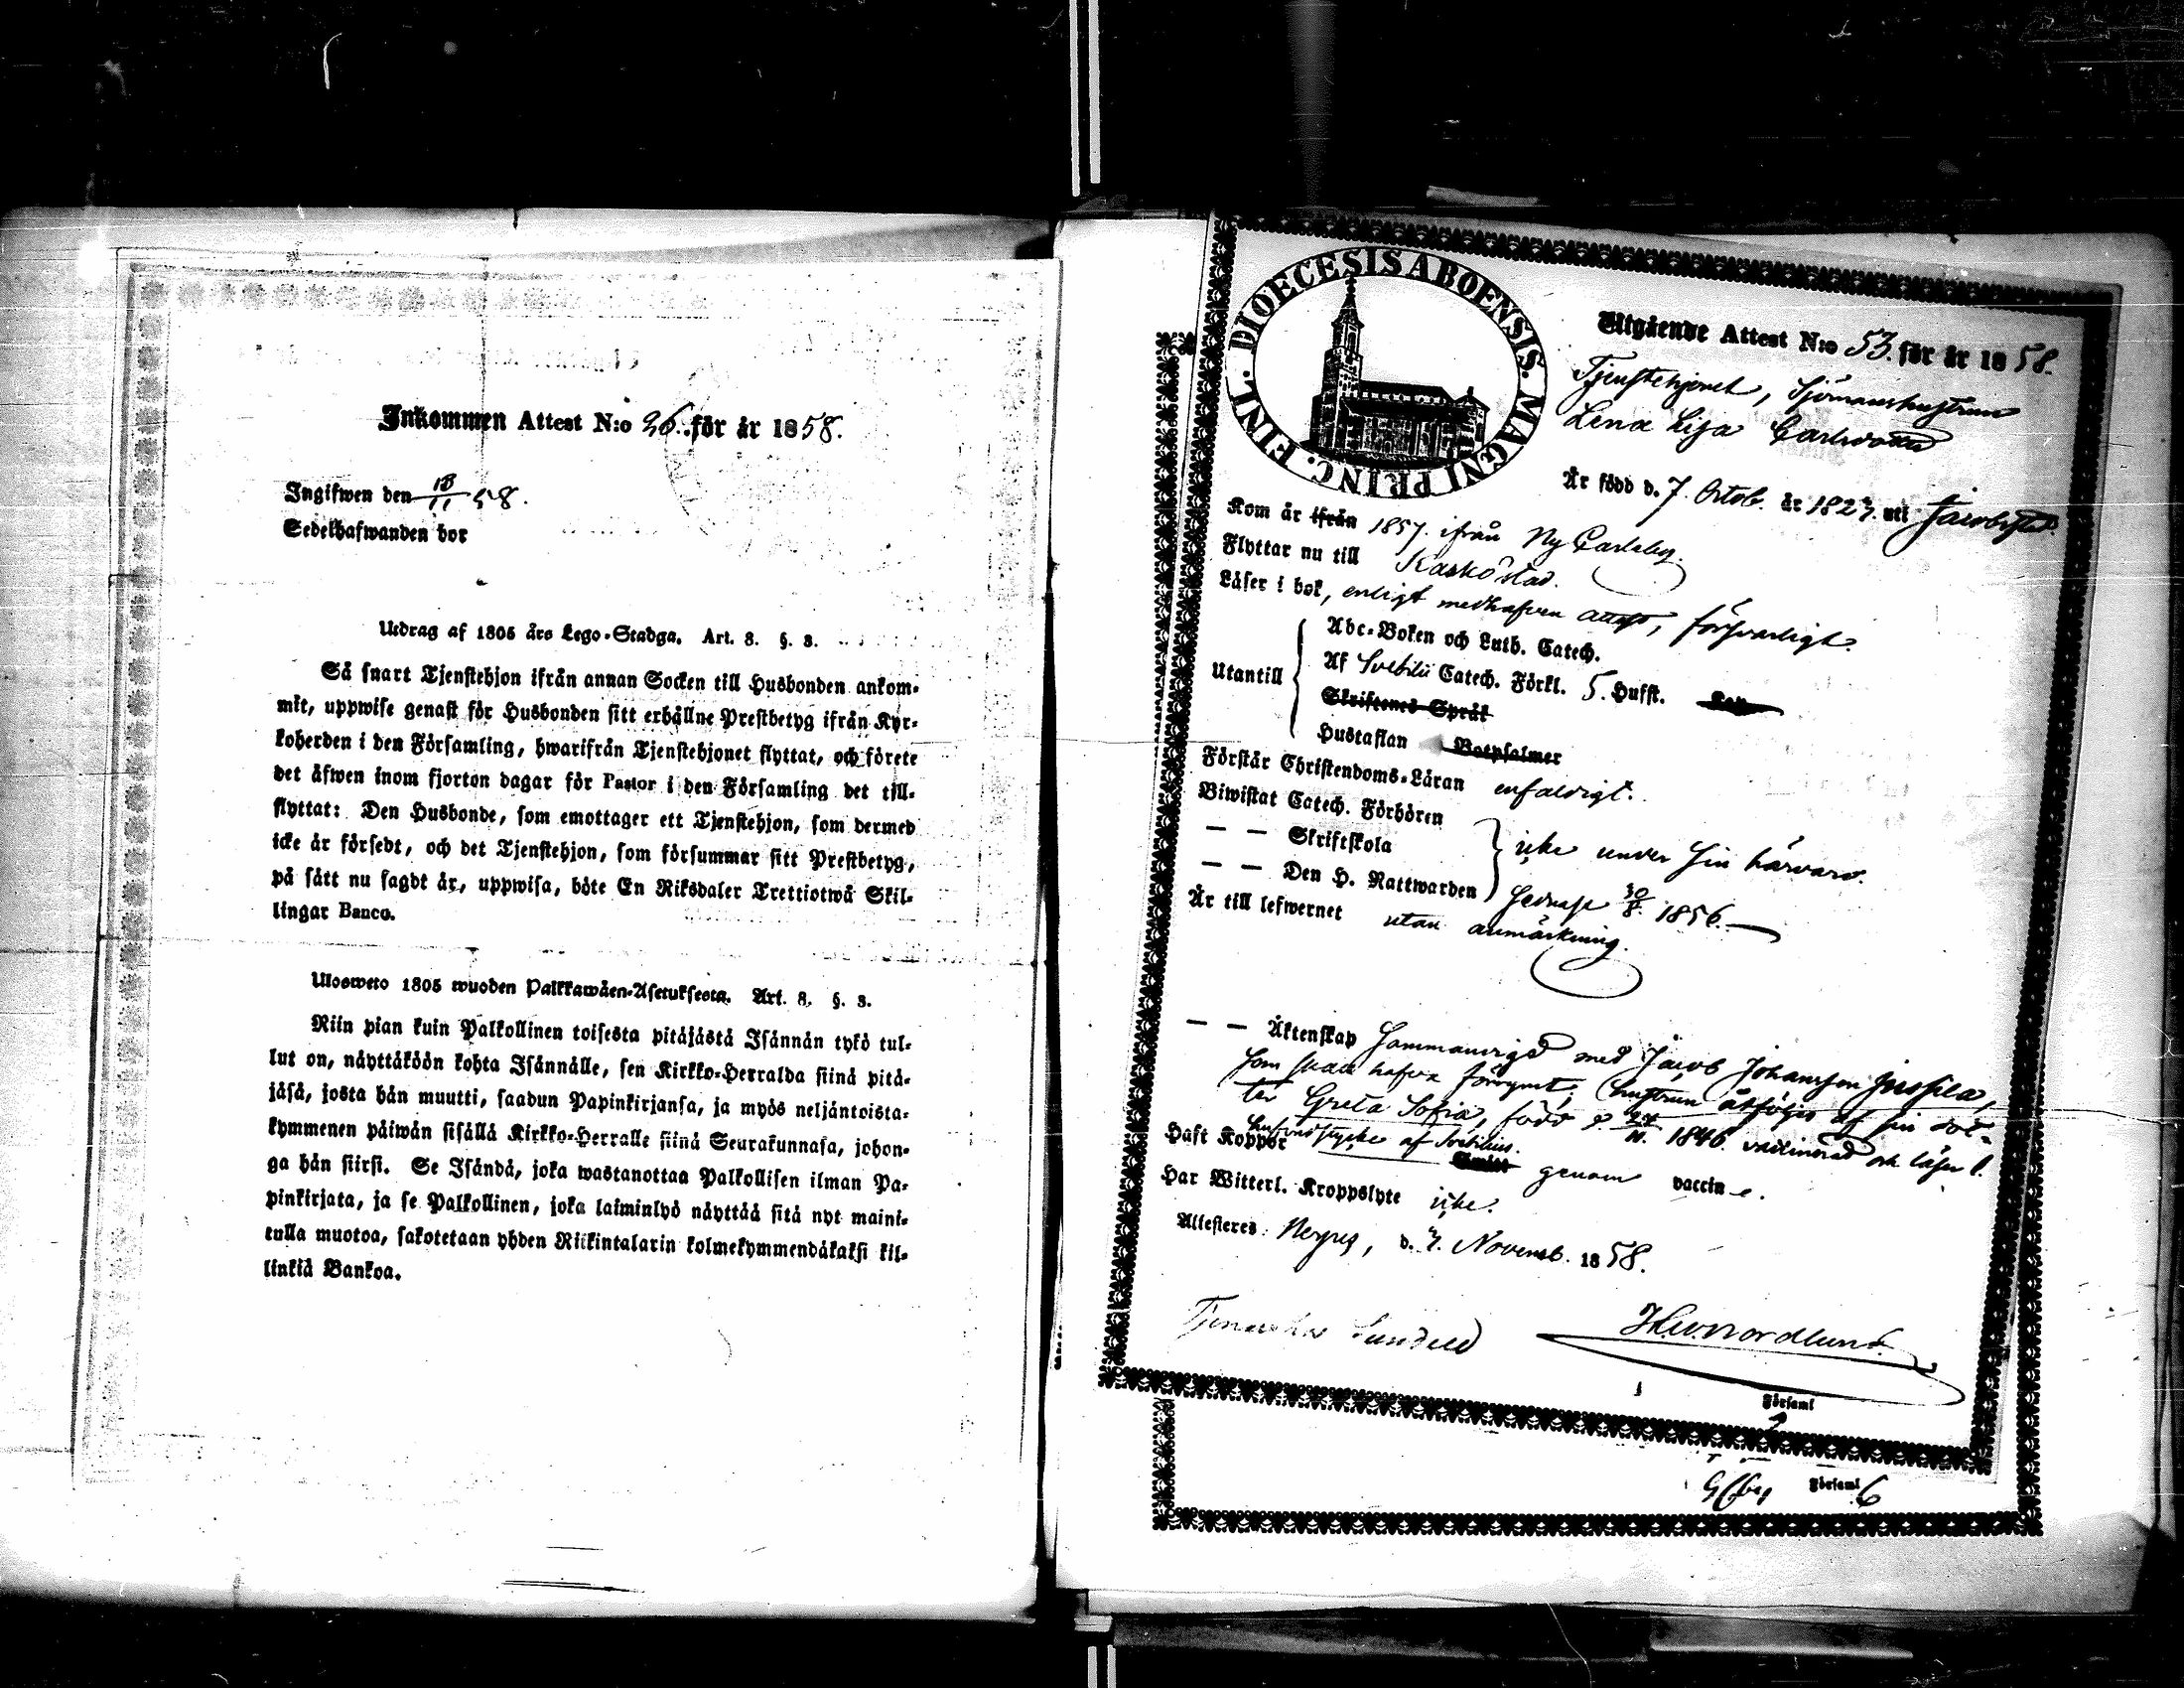 Inkommen Attest N:o 26. för år 1858.
Ingifwen den 18/11 58.
Sedelhafwanden bor
Utdrag af 1805 års Lego-Stadga. Art. 8. §. 3.
Så snart Tjenstehjon ifrån annan Socken till Husbonden ankom-
mit, uppwise genast för Husbonden sitt erhållne Prestbetyg ifrån Kyr-
koherden i den Församling, hwarifrån Tjenstehjonet flyttat, och förete
det äfwen inom fjorton dagar för Pastor i den Församling det till-
flyttat: Den Husbonde, som emottager ett Tjenstehjon, som dermed
icke är försedt, och det Tjenstehjon, som försummar sitt Prestbetyg,
på sätt nu sagdt är, uppwisa, böte En Riksdaler Trettiotwå Skil-
lingar Banco.
Ulosweto 1805 wuoden Palkkawäen-Asetuksesta. Art. 8. §. 3.
Niin pian kuin Palkollinen toisesta pitäjästä Isännän tykö tul-
lut on, näyttäköön kohta Isännälle, sen Kirkko-Herralda siinä pitä-
jäsä, josta hän muutti, saadun Papinkirjansa, ja myös neljäntoista-
kymmenen päiwän sisällä Kirkko-Herralle siinä Seurakunnasa, johon-
ga hän siirsi. Se Isändä, joka wastanottaa Palkollisen ilman Pa-
pinkirjata, ja se Palkollinen, joka laiminlyö näyttää sitä nyt maini-
tulla muotoa, sakotetaan yhden Riikintalarin kolmekymmendäkaksi kil-
linkiä Bankoa.
FINL. DIOECESIS ABOENSIS. MAGNI PRINC.
Utgående Attest N:o 53. för år 1858.
Tjenstehjonet, Sjömanshustrun
Lena Lisa
Är född d. 7. Octob. år 1823. uti Jacobstad.
Kom år ifrån 1857. ifrån Ny Carleby.
Flyttar nu till Kaskö stad.
Läser i bok, enligt medhafven attest, försvarligt.
Utantill
Abc-Boken och Luth. Catech.
Af Svebilii Catech. Förkl. 5. Hufst.
Skriftenes Språk
Hustaflan Botpsalmer
Förstår Christendoms-Läran enfaldigt.
Biwistat Catech. Förhören
— — Skriftskola
icke under sin härvaro.
— — Den H. Nattwarden sednast 30/8. 1856.
Är till lefwernet utan anmärkning.
— — Äktenskap Sammanvigd med Jacob Johansson Jussila,
som skall hafva förrymt; hustrun åtföljes af sin dot-
ter Greta Sofia, född d. 24/11. 1846. vaccinerad och läser l.
hufvudstycke af Svebilius.
Haft Koppor genom vaccin e.
Har Witterl. Kroppslyte icke.
Attesteres: Nerpes, d. 7. Novemb. 1858.
Nordlund.
Församl
Församl 6